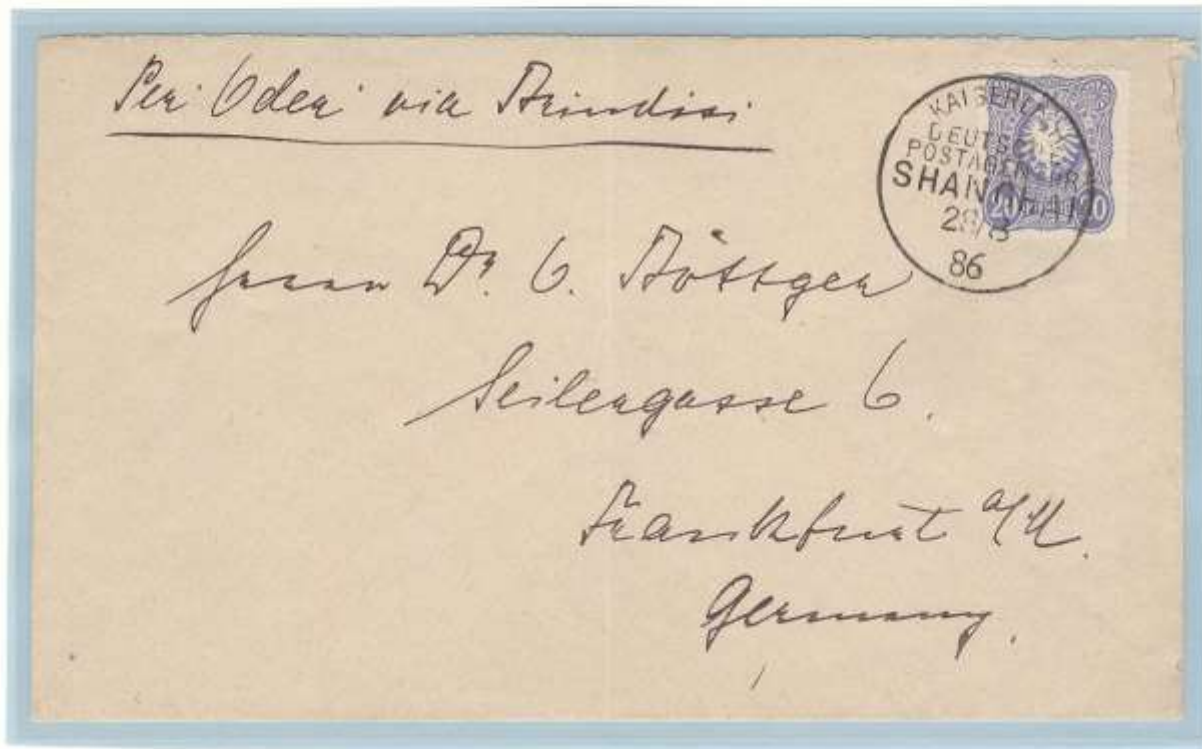 Per "Oder" via Brindisi
KAISERL.
DEUTSCHE
POSTAGENTUR
SHANGHAI
28/8
86
20 20
Herrn Dr. O. Böttger
Seilergasse 6.
Frankfurt a/M.
Germany.